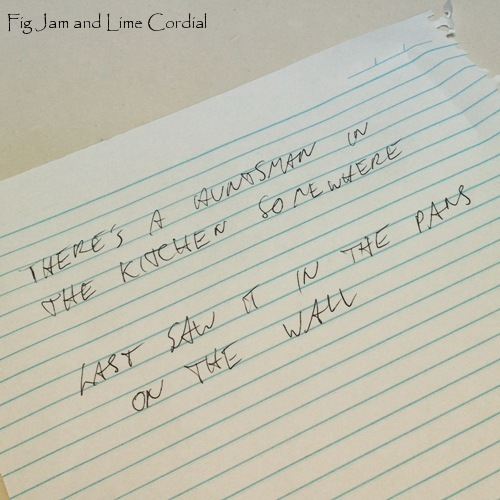 Fig Jam and Lime Cordial
THERE'S A HUNTSMAN IN
THE KITCHEN SOMEWHERE
LAST SAW IT IN THE PANS
ON THE WALL